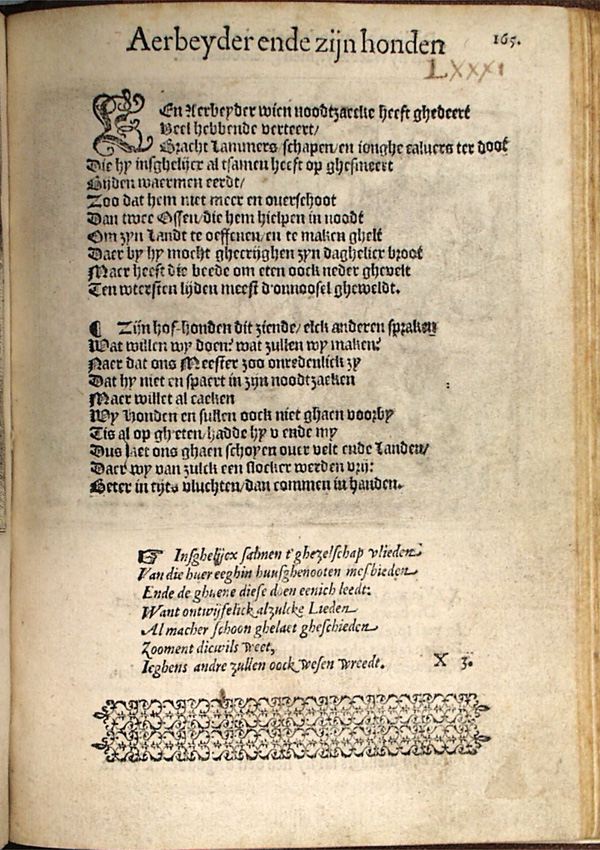 Aerbeyder ende zijn honden
165.
LXXXI
EEn Aerbeyder wien noodtzaecke heeft ghedeert
Veel hebbende verteert/
Bracht Lammers/schapen/en ionghe calvers ter doot
Die hy insghelijcx al tsamen heeft op ghesmeert
Byden waermen eerdt/
Zoo dat hem niet meer en overschoot
Dan twee Ossen/die hem hielpen in noodt
Om zyn Landt te oeffenen/en te maken ghelt
Daer by hy mocht ghecrijghen zyn daghelicx broot
Maer heeft die beede om eten oock neder ghevelt
Ten wtersten lijden meest d'onnoosel gheweldt.
¶ Zijn hof-honden dit ziende/elck anderen spraken
Wat willen wy doen? wat zullen wy maken?
Naer dat ons Meester zoo onredenlick zy
Dat hy niet en spaert in zijn noodtzaeken
Maer willet al caeken
Wy honden en sullen oock niet ghaen voorby
Tis al op gheten/hadde hy v ende my
Dus laet ons ghaen schoyen over velt ende Landen/
Daer wy van zulck een slocker werden vrij:
Beter in tijts vluchten/dan commen in handen.
☞ Insghelijcx salmen t'ghezelschap vlieden
Van die huer eeghin huusghenooten mesbieden
Ende de ghuene diese doen eenich leedt.
Want ontwijfelick alzulcke Lieden
Al macher schoon ghelaet gheschieden
Zooment dicwils weet,
Ieghens andre zullen oock wesen wreedt.
X 3.